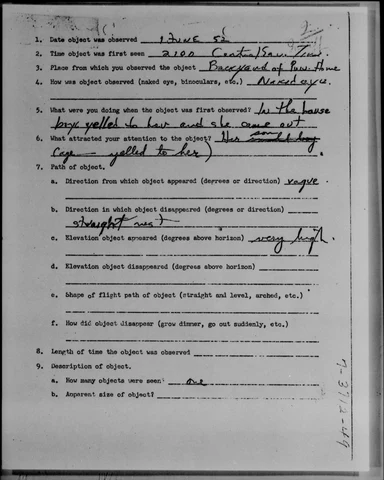 1. Date object was observed 1 June 52
2. Time object was first seen 2100 Central Sav. Time
3. Place from which you observed the object Backyard of Home
4. How was object observed (naked eye, binoculars, etc.) Naked eye
5. What were you doing when the object was first observed? In the house
boy yelled to her and she came out
6. What attracted your attention to the object? Her son
yelled to her)
7. Path of object.
a. Direction from which object appeared (degrees or direction) vague
b. Direction in which object disappeared (degrees or direction)
straight west
c. Elevation object appeared (degrees above horizon) very high
d. Elevation object disappeared (degrees above horizon)
e. Shape of flight path of object (straight and level, arched, etc.)
f. How did object disappear (grow dimmer, go out suddenly, etc.)
8. Length of time the object was observed
9. Description of object.
a. How many objects were seen one
b. Apparent size of object?
7-3712-49